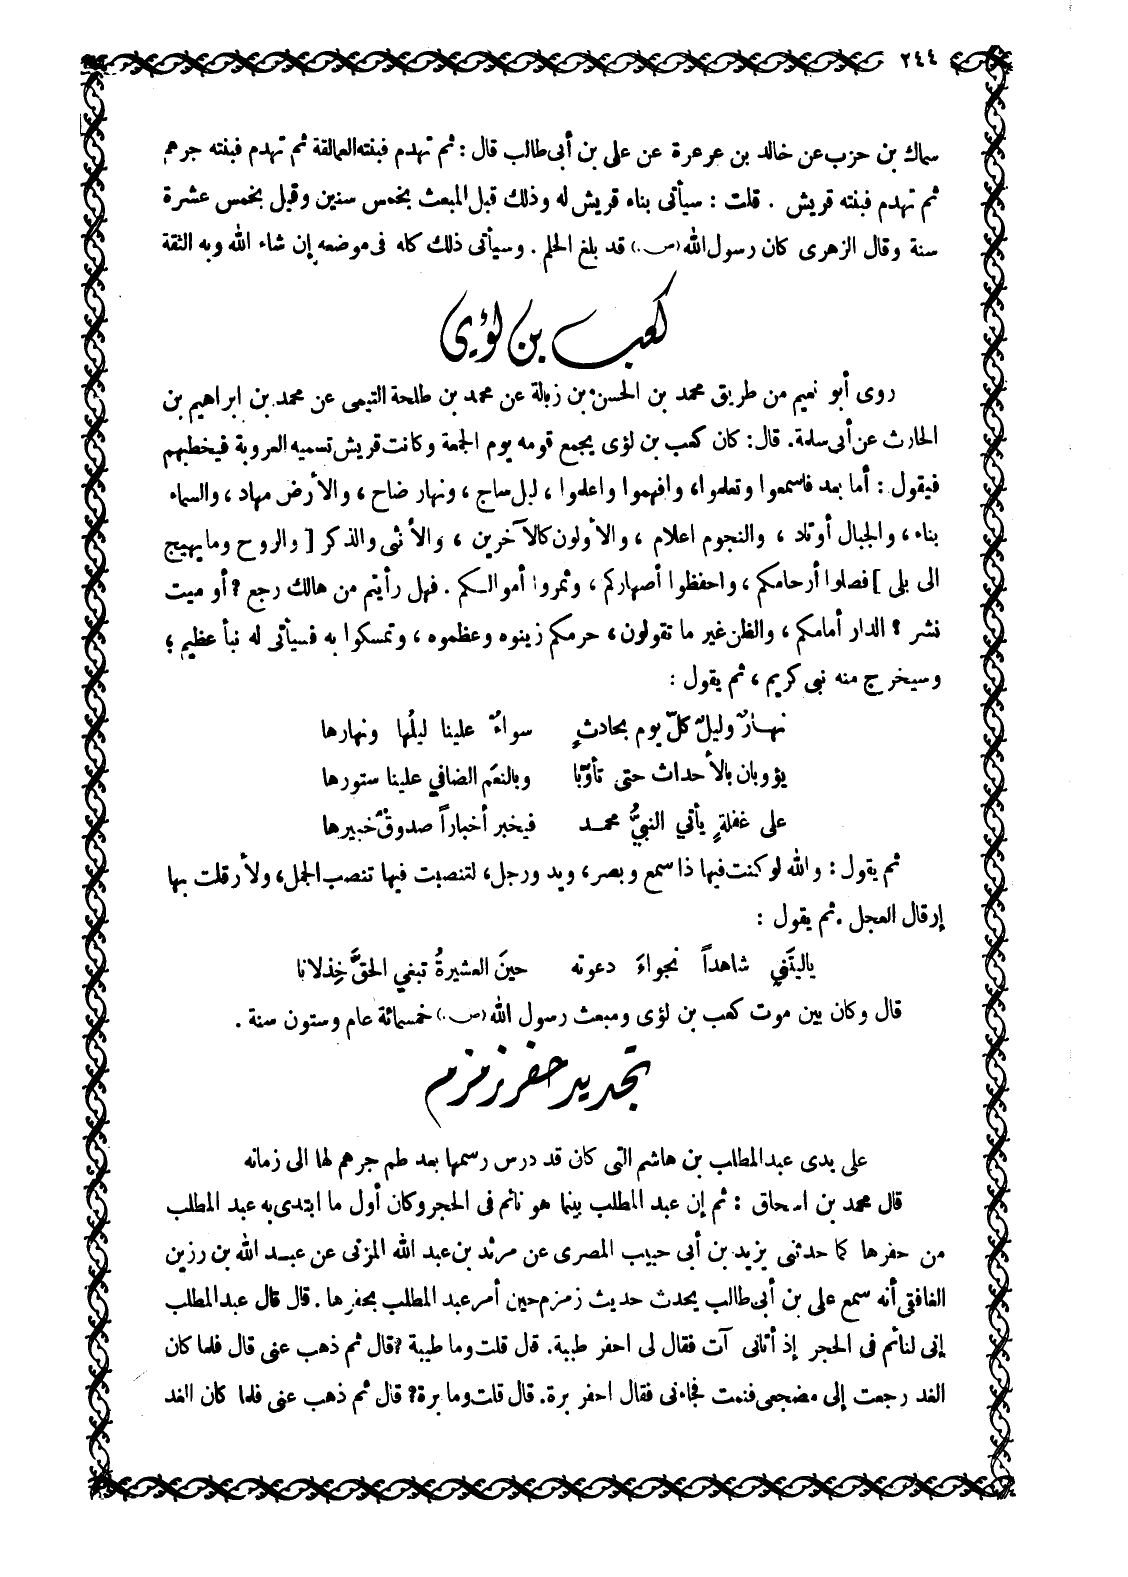 ٢٤٤
سماك بن حزب عن خالد بن عرعرة عن على بن أبى طالب قال : ثم تهدم فبنته العمالقة ثم تهدم فبنته جرهم
ثم تهدم فبنته قريش . قلت : سيأتى بناء قريش له وذلك قبل المبعث بخمس سنين وقيل بخمس عشرة
سنة وقال الزهرى كان رسول الله (ص.) قد بلغ الحلم . وسيأتى ذلك كله فى موضعه إن شاء الله وبه الثقة
كعب بن لؤى
روى أبو نعيم من طريق محمد بن الحسن بن زبالة عن محمد بن طلحة التيمى عن محمد بن ابراهيم بن
الحارث عن أبى سلمة. قال: كان كعب بن لؤى يجمع قومه يوم الجمعة وكانت قريش تسميه العروبة فيخطبهم
فيقول : أما بعد فاسمعوا وتعلموا، وافهموا واعلموا ، ليل ساج ، ونهار ضاح ، والأرض مهاد ، والسماء
بناء ، والجبال أوتاد ، والنجوم اعلام ، والأولون كالآخرين ، والأنثى والذكر [ والروح وما يهيج
الى بلى ] فصلوا أرحامكم ، واحفظوا أصهاركم ، وثمروا أموالكم . فهل رأيتم من هالك رجع ؟ أو ميت
نشر ؟ الدار أمامكم ، والظن غير ما تقولون ، حرمكم زينوه وعظموه ، وتمسكوا به فسيأتى له نبأ عظيم ؛
وسيخرج منه نبى كريم ، ثم يقول :
نهارٌ وليلٌ كلّ يوم بحادثٍ سواءٌ علينا ليلُها ونهارها
يؤوبان بالأحداث حتى تأوّبا وبالنعَم الضافي علينا ستورها
على غفلةٍ يأتي النبيُّ محمد فيخبر أخباراً صدوقٌ خبيرها
ثم يقول : والله لو كنت فيها ذا سمع وبصر ، ويد ورجل ، لتنصبت فيها تنصب الجمل ، ولأرقلت بها
إرقال العجل . ثم يقول :
ياليتَني شاهداً نجواءَ دعوته حينَ العشيرةُ تبغي الحقَّ خِذلانا
قال وكان بين موت كعب بن لؤى ومبعث رسول الله (ص.) خمسمائة عام وستون سنة .
تجديد حفر زمزم
على يدى عبد المطلب بن هاشم التى كان قد درس رسمها بعد طم جرهم لها الى زمانه
قال محمد بن اسحاق : ثم إن عبد المطلب بينما هو نائم فى الحجر وكان أول ما ابتدى به عبد المطلب
من حفرها كما حدثنى يزيد بن أبى حبيب المصرى عن مرثد بن عبد الله المزنى عن عبد الله بن رزين
الغافقى أنه سمع على بن أبى طالب يحدث حديث زمزم حين أمر عبد المطلب بحفرها . قال قال عبد المطلب
إنى لنائم فى الحجر إذ أتانى آت فقال لى احفر طيبة. قال قلت وما طيبة ؟ قال ثم ذهب عنى قال فلما كان
الغد رجعت إلى مضجعى فنمت فجاءنى فقال احفر برة. قال قلت وما برة؟ قال ثم ذهب عنى فلما كان الغد